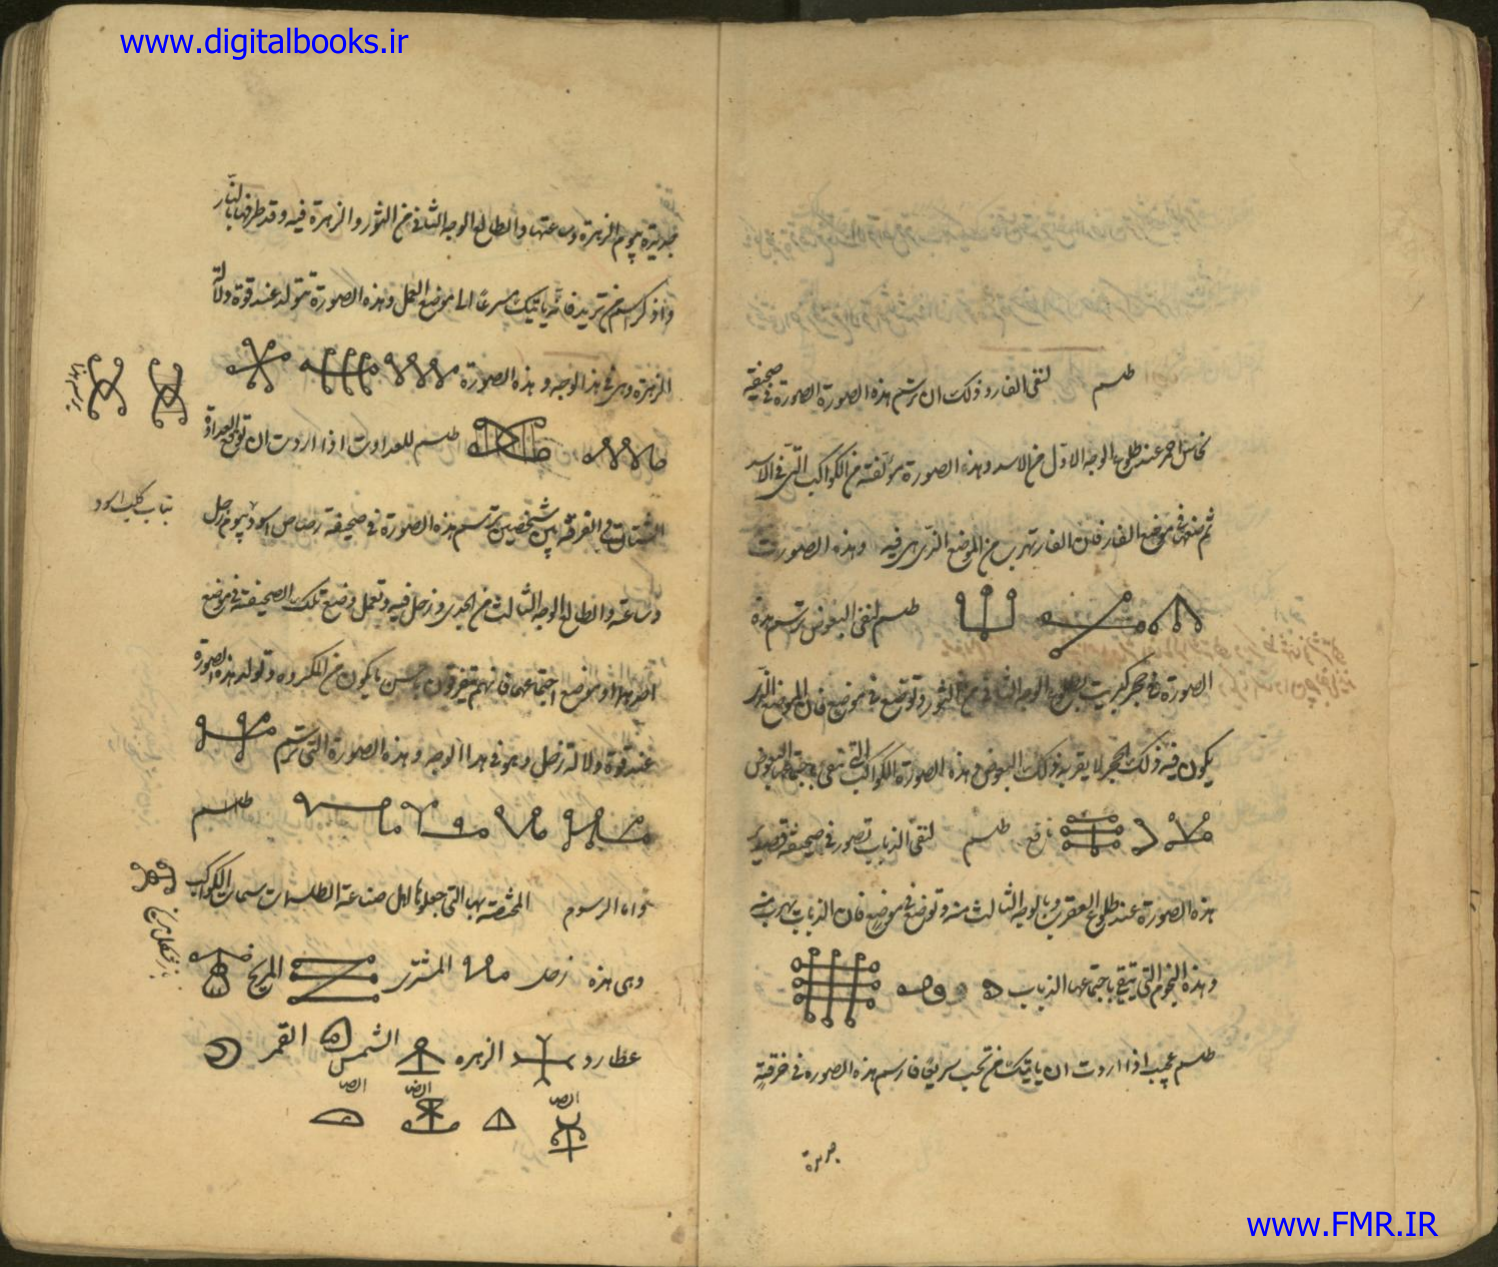 www.digitalbooks.ir
طلسم لنفى الفار وذلك ان ترسم هذه الصورة الصورة في صحيفة
نحاس احمر عند طلوع الوجه الاول من الاسد وهذه الصورة مؤلفة من الكواكب التي في الاسد
ثم ضعها في موضع الفار فان الفار تهرب من الموضع الذي هي فيه وهذه الصورت
طلسم لنفى البعوض ترسم هذه
الصورة في حجر كبريت بطلوع الوجه الثاني من الثور وتوضع في موضع فان الموضع الذي
يكون فيه ذلك الحجر لا يقربه ذلك البعوض وهذه الصورة الكواكب التي تنفى باجتماعها البعوض
طلسم لنفى الذباب تصور في صحيفة قصدير
هذه الصورة عند طلوع العقرب وبالوجه الثالث منه وتوضع في موضع فان الذباب يهرب منه
وهذه النجوم التي تنفى باجتماعها الذباب
طلسم عجيب اذا اردت ان ياتيك من تحب سريعا فارسم هذه الصوره في خرقة
جديدة
جديدة بيوم الزهرة وساعتها والطالع الوجه الثاني من الثور والزهرة فيه وقد طرفها بالنار
واذكر اسم من تريد فانه ياتيك مسرعا الى موضع العمل وهذه الصورة تتولد عند قوة دلالة
الزهرة وهى في هذا الوجه وهذه الصورة
طلسم للعداوت اذا اردت ان توقع العداوة
الشتات والفرقة بين شخصين ترسم هذه الصورة في صحيفة رصاص اسود بيوم زحل
وساعته والطالع الوجه الثالث من الجدى وزحل فيه وتعمل وضع تلك الصحيفة في موضع
احدهما او موضع اجتماعهما فانهم يتفرقون باحسن ما يكون من المكروه وتولد هذه الصورة
عند قوة دلالة زحل وهو في هذا الوجه وهذه الصورة التي ترسم
طلسم
واما الرسوم المختصة بها التي جعلوها اهل صناعة الطلسمات سمات الكواكب
وهى هذه زحل المشترى المريخ
عطارد الزهره الشمس القمر
www.FMR.IR